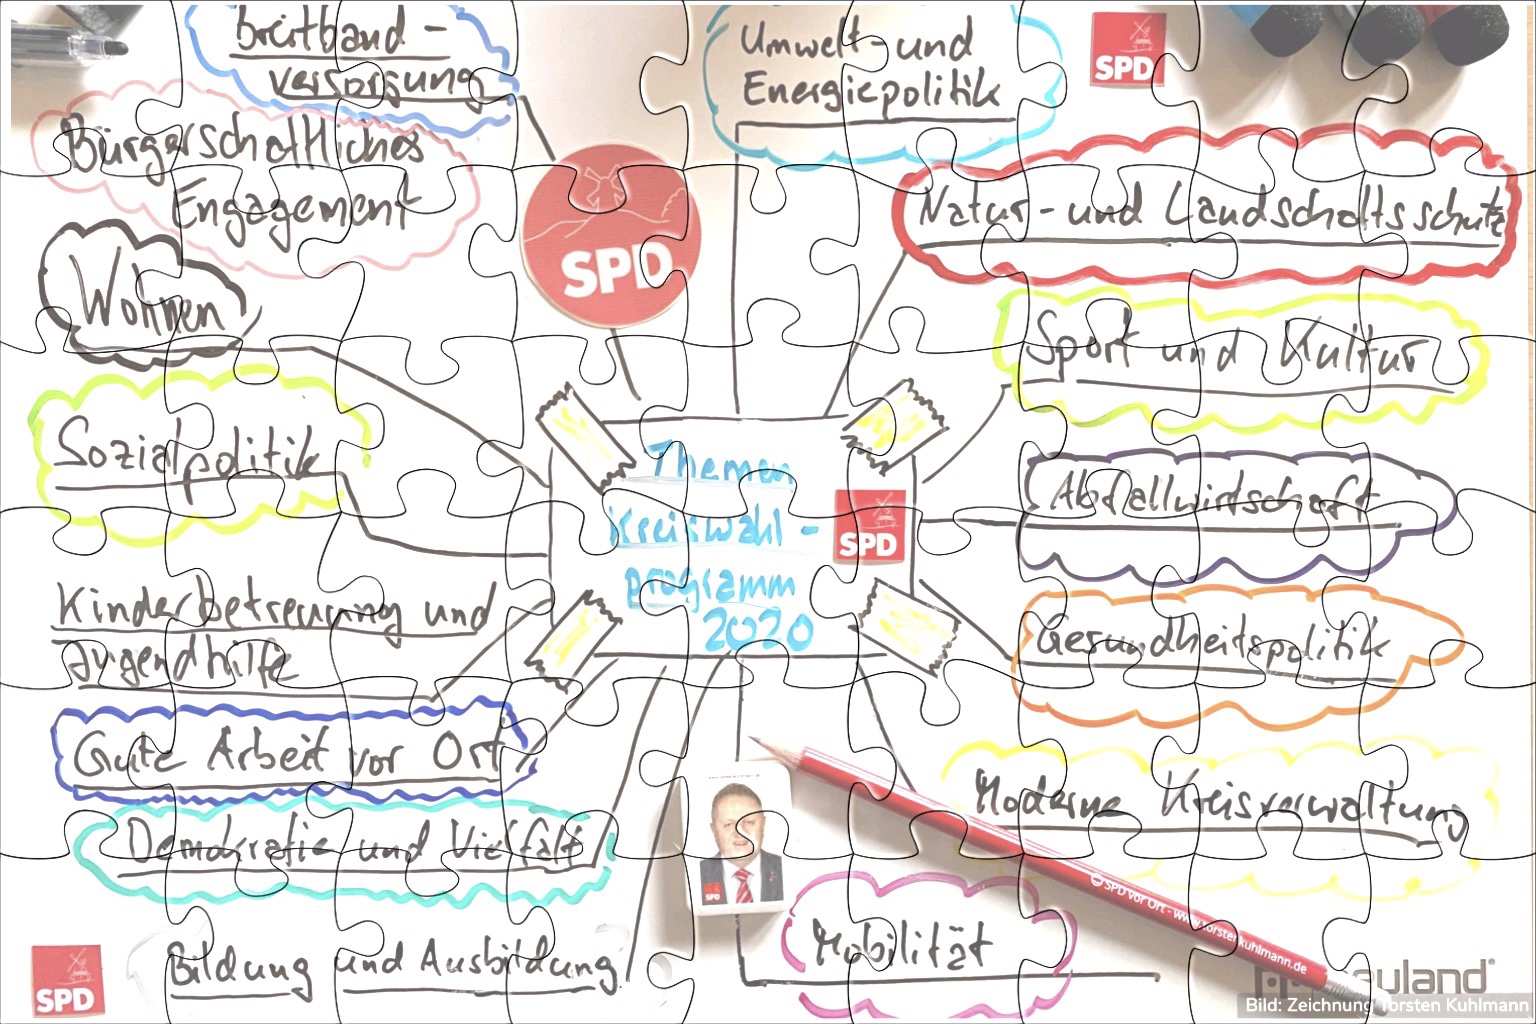 Breitband-
versorgung
Umwelt- und
Energiepolitik
SPD
Bürgerschaftliches
Engagement
SPD
Natur- und Landschaftsschutz
Wohnen
Sport und Kultur
Sozialpolitik
Themen
Kreiswahl-
programm
2020
SPD
Abfallwirtschaft
Kinderbetreuung und
Jugendhilfe
Gesundheitspolitik
Gute Arbeit vor Ort
Moderne Kreisverwaltung
Demokratie und Vielfalt
SPD
SPD vor Ort - www.torstenkuhlmann.de
Bildung und Ausbildung
Mobilität
SPD
Bild: Zeichnung Torsten Kuhlmann